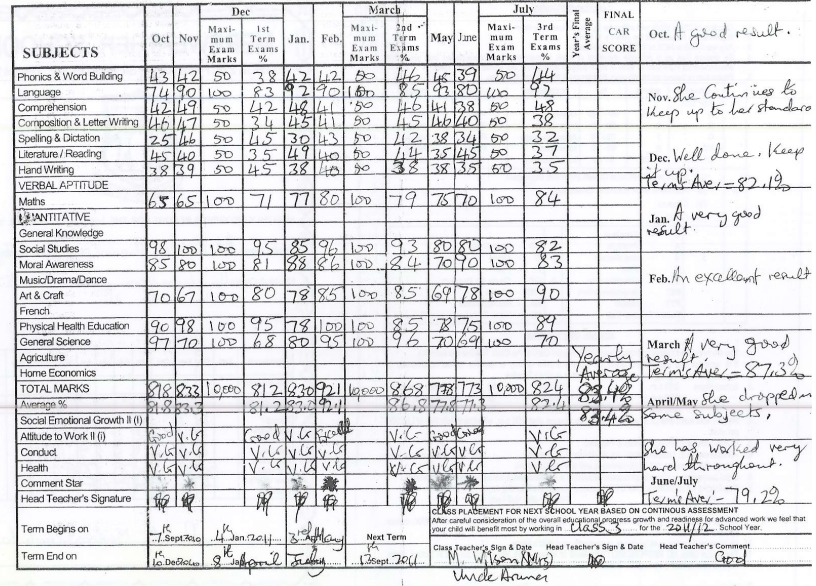 Dec March July
SUBJECTS Oct Nov Maximum Exam Marks 1st Term Exams % Jan. Feb. Maximum Exam Marks 2nd Term Exams % May June Maximum Exam Marks 3rd Term Exams % Year's Final Average FINAL CAR SCORE
Phonics & Word Building 43 42 50 38 42 42 50 46 45 39 50 44
Language 74 90 100 83 92 90 100 85 93 80 100 92
Comprehension 42 49 50 42 48 41 50 46 41 38 50 48
Composition & Letter Writing 46 47 50 34 45 41 50 45 46 40 50 38
Spelling & Dictation 25 46 50 45 30 43 50 42 38 34 50 32
Literature / Reading 45 40 50 35 49 40 50 44 35 45 50 37
Hand Writing 38 39 50 45 38 40 50 38 38 35 50 35
VERBAL APTITUDE
Maths 65 65 100 71 77 80 100 79 75 70 100 84
QUANTITATIVE
General Knowledge
Social Studies 98 100 100 95 85 96 100 93 80 80 100 82
Moral Awareness 85 80 100 81 88 86 100 84 70 90 100 83
Music/Drama/Dance
Art & Craft 70 67 100 80 78 85 100 85 69 78 100 90
French
Physical Health Education 90 98 100 95 78 100 100 85 78 75 100 89
General Science 97 70 100 68 80 95 100 96 70 69 100 70
Agriculture Yearly
Home Economics Average
TOTAL MARKS 818 833 10,000 812 830 921 10,000 868 778 773 10,000 824 83.4%
Average % 81.8 83.3 81.2 83.0 92.1 86.8 77.8 77.3 82.4
Social Emotional Growth II (I) 83.4%
Attitude to Work II (i) Good V.G Good V.G V.G Good Good V.G
Conduct V.G V.G V.G V.G V.G V.G V.G V.G V.G
Health V.G V.G V.G V.G V.G V.G V.G V.G V.G
Comment Star
Head Teacher's Signature
Term Begins on 7 Sept 2010 4 Jan. 2011 3 May Next Term
Term End on 10 Dec 2010 8 April July 13 Sept. 2011
Oct. A good result.
Nov. She Continues to
keep up to her standard
Dec. Well done. Keep
it up.
Term's Aver = 82.1%
Jan. A very good
result.
Feb. An excellent result
March A very good
result.
Term's Aver = 87.3%
April/May She dropped in
some subjects.
She has worked very
hard throughout.
June/July
Term's Aver - 79.2%
CLASS PLACEMENT FOR NEXT SCHOOL YEAR BASED ON CONTINOUS ASSESSMENT
After careful consideration of the overall educational progress growth and readiness for advanced work we feel that
your child will benefit most by working in Class 3 for the 2011/12 School Year.
Class Teacher's Sign & Date Head Teacher's Sign & Date Head Teacher's Comment
M. Wilson (Mrs) Good